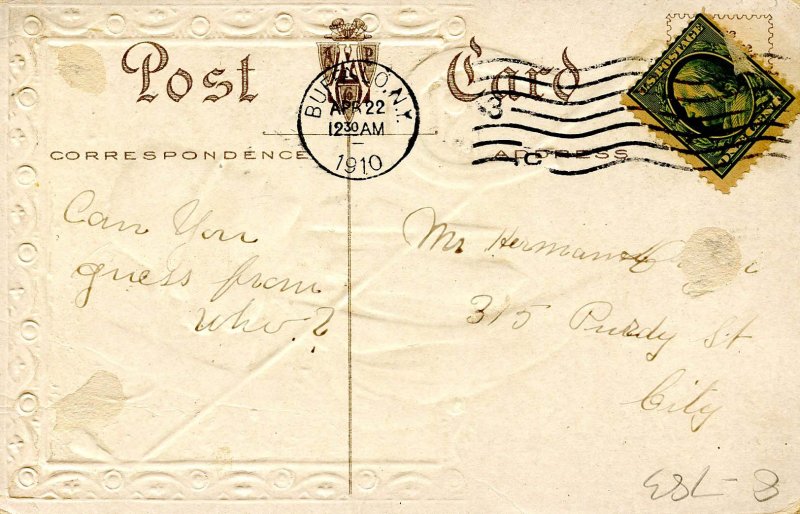 Post Card
BUFFALO, N.Y.
APR 22
12 30 AM
1910
3
U.S. POSTAGE
ONE CENT
CORRESPONDENCE
ADDRESS
Can You
guess from
who?
Mr Herman
315 Purdy St
City